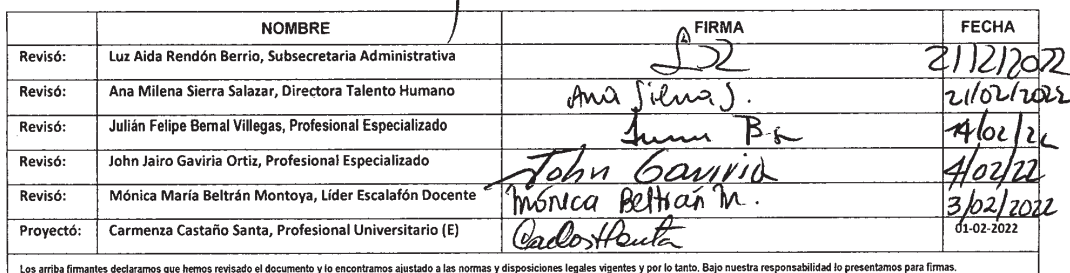 NOMBRE FIRMA FECHA
Revisó: Luz Aida Rendón Berrio, Subsecretaria Administrativa 21/2/2022
Revisó: Ana Milena Sierra Salazar, Directora Talento Humano Ana Sierra S. 21/02/2022
Revisó: Julián Felipe Bernal Villegas, Profesional Especializado 4/02/22
Revisó: John Jairo Gaviria Ortiz, Profesional Especializado John Gaviria 4/02/22
Revisó: Mónica María Beltrán Montoya, Líder Escalafón Docente Mónica Beltrán M. 3/02/2022
Proyectó: Carmenza Castaño Santa, Profesional Universitario (E) 01-02-2022
Los arriba firmantes declaramos que hemos revisado el documento y lo encontramos ajustado a las normas y disposiciones legales vigentes y por lo tanto. Bajo nuestra responsabilidad lo presentamos para firmas.